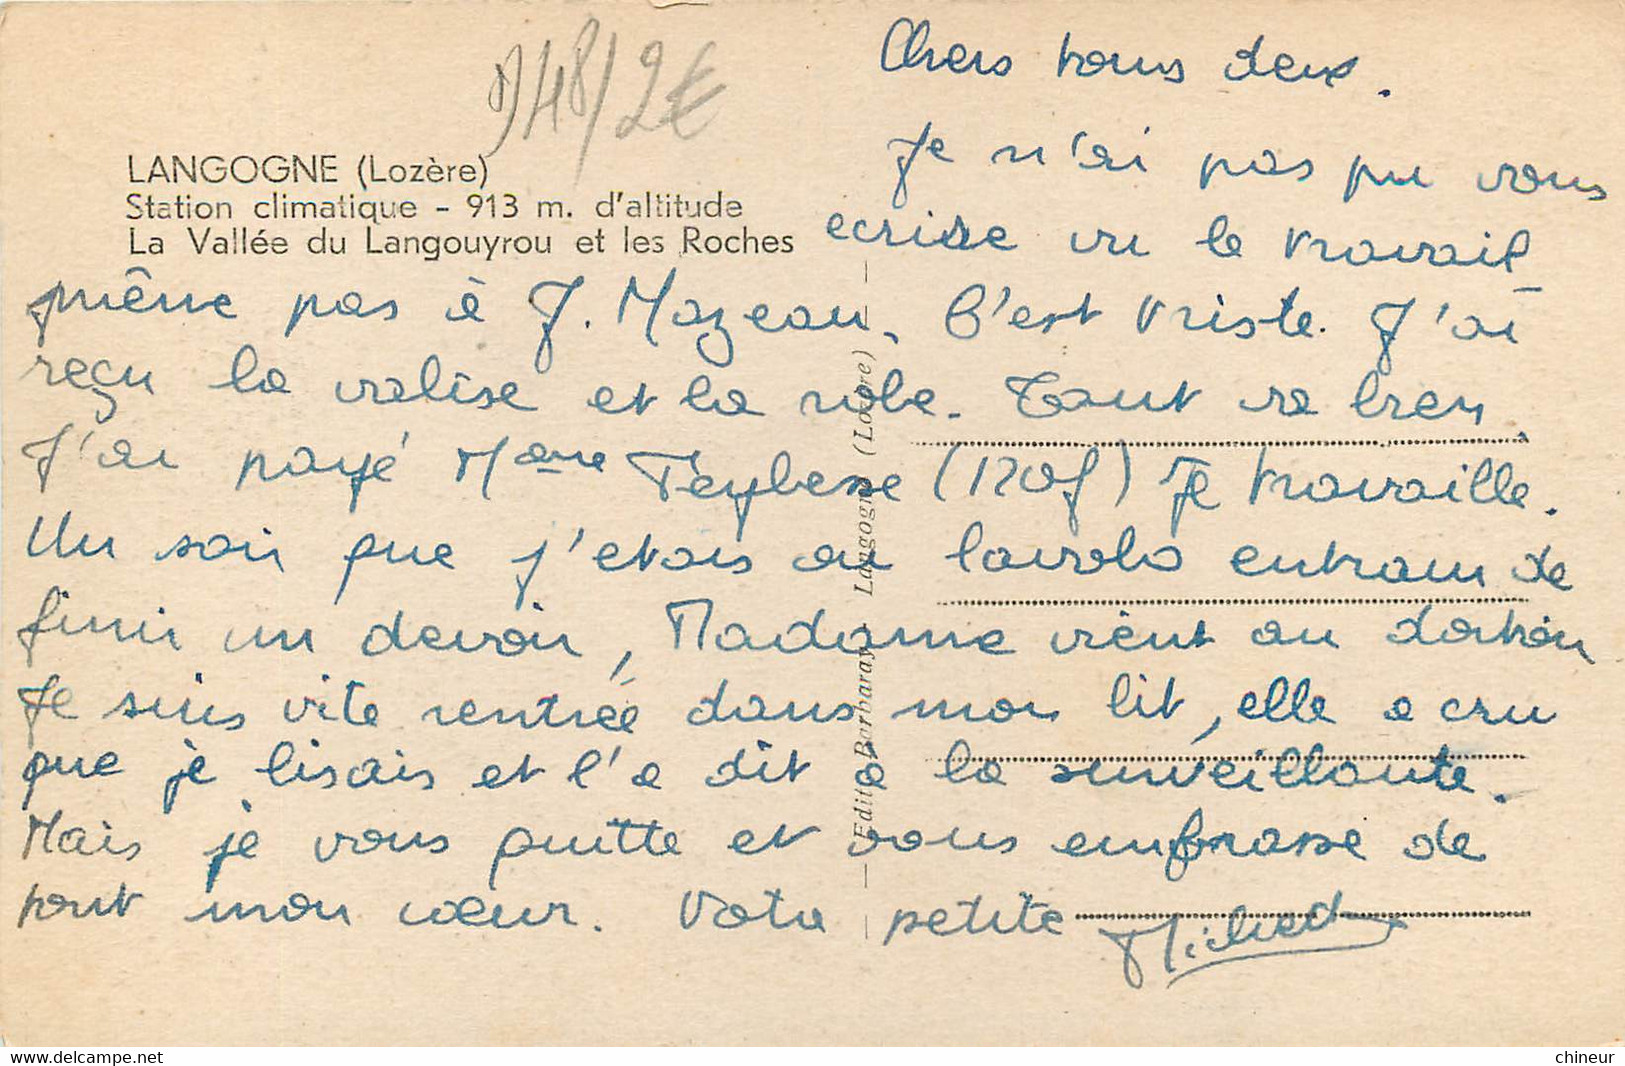 948/2€
LANGOGNE (Lozère)
Station climatique - 913 m. d'altitude
La Vallée du Langouyrou et les Roches
Chers tous deux.
Je n'ai pas pu vous
ecrire vu le travail
même pas à J. Mazeau. C'est triste. J'ai
reçu la valise et la robe. Tout va bien.
J'ai payé Mame Teybesse (170f) Je travaille.
Un soir que j'etais au lavabo entrain de
finir un devoir, Madame vient au dortoir
Je suis vite rentrée dans mon lit, elle a cru
que je lisais et l'a dit a la surveillante.
Mais je vous quitte et vous embrasse de
tout mon cœur. Votre petite
— Edit. Barbaray, Langogne (Lozère) —
chineur
https://www.delcampe.net